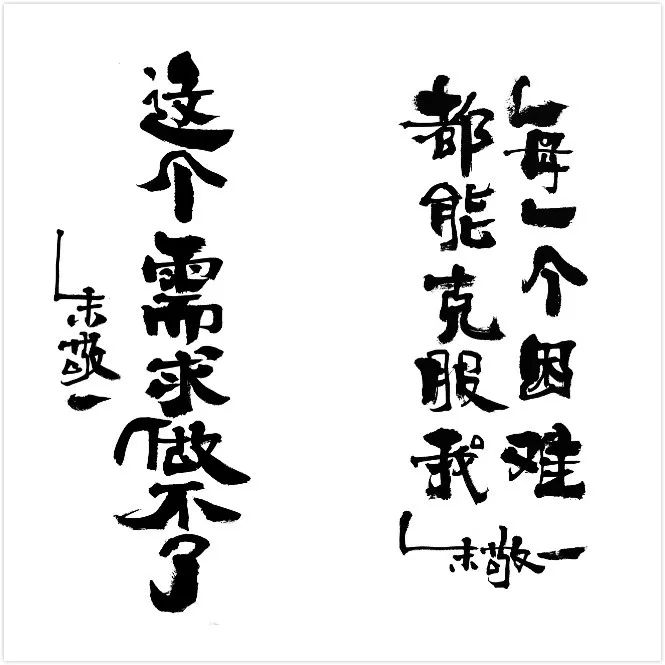 每一个困难
都能克服我
朱敬一
这个需求做不了
朱敬一